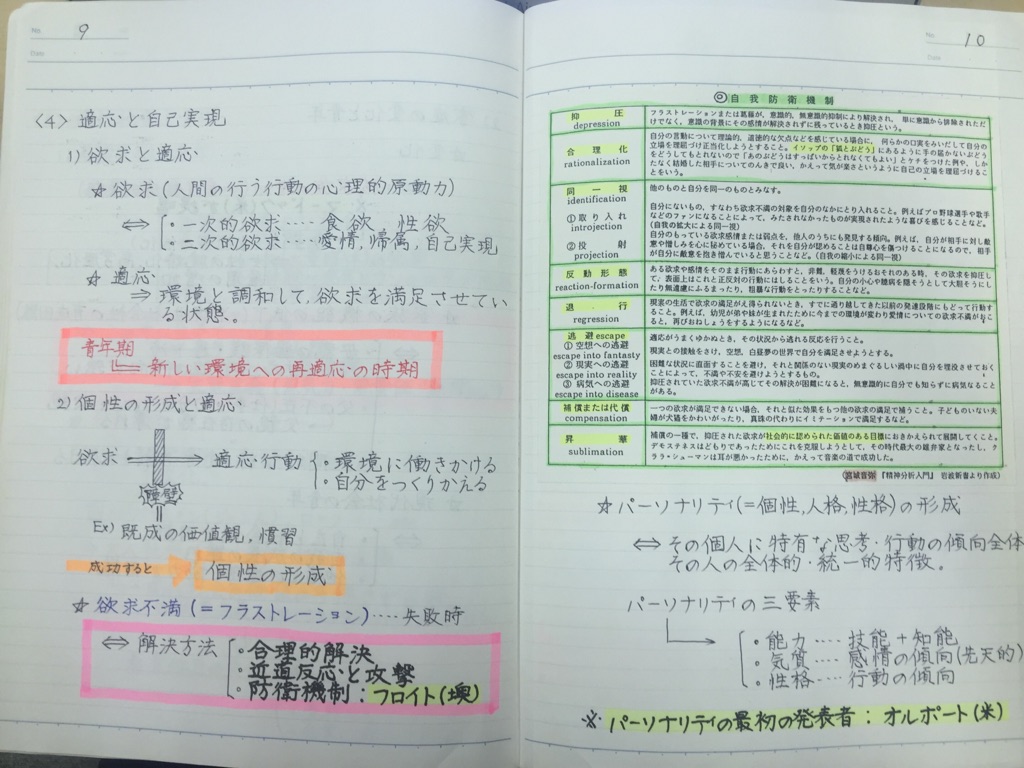 No. 9
Date
〈4〉 適応と自己実現
1) 欲求と適応
☆ 欲求(人間の行う行動の心理的原動力)
⇔ ・一次的欲求‥‥食欲 性欲
・二次的欲求‥‥愛情,帰属,自己実現
☆ 適応
⇒ 環境と調和して,欲求を満足させてい
る状態。
青年期
新しい環境への再適応の時期
2) 個性の形成と適応
欲求 → 適応行動 ・環境に働きかける
・自分をつくりかえる
障壁
Ex) 既成の価値観,慣習
成功すると 個性の形成
☆ 欲求不満(=フラストレーション)‥‥失敗時
⇔ 解決方法 ・合理的解決
・近道反応と攻撃
・防衛機制:フロイト(墺)
No. 10
Date
◎自我防衛機制
抑圧 depression
フラストレーションまたは葛藤が,意識的,無意識的抑制により解決され, 単に意識から排除されただ
けでなく,意識の背景にその感情が解決されずに残っているとき抑圧という。
合理化 rationalization
自分の言動について理論的,道徳的な欠点などを感じている場合に, 何らかの口実をみいだして自分の
立場を理屈づけ正当化しようとすること。イソップの「狐とぶどう」にあるように手の届かないぶどう
をどうしてもとれないので「あのぶどうはすっぱいからとれなくてもよい」とケチをつけた例や, しか
たなく結婚した相手についてのんきで良い,かえって気が楽さというように自己の立場を理屈づけるこ
とをいう。
同一視 identification
他のものと自分を同一のものとみなす。
①取り入れ introjection
自分にないもの,すなわち欲求不満の対象を自分のなかにとり入れること。例えばプロ野球選手や歌手
などのファンになることによって,みたされなかったものが実現されたような喜びを感じることなど。
(自我の拡大による同一視)
②投射 projection
自分のもっている欲求感情または弱点を,他人のうちにも発見する傾向。例えば,自分が相手に対し敵
意や憎しみを心に秘めている場合,それを自分が認めることは自尊心を傷つけることになるので,相手
が自分に敵意を抱き憎んでいると思うことなど。(自我の縮小による同一視)
反動形態 reaction-formation
ある欲求や感情をそのまま行動にあらわすと,非難,軽蔑をうけるおそれのある時,その欲求を抑圧し
て,表面上はこれと正反対の行動にはしることをいう。自分の小心や臆病を隠そうとして大胆そうにし
たり無遠慮にふるまったり,粗暴な行動をとったりすることなど。
退行 regression
現実の生活で欲求の満足がえ得られないとき,すでに通り越してきた以前の発達段階にもどって行動す
ること。例えば,幼児が弟や妹が生まれたために今までの環境が変わり愛情についての欲求不満がおこ
ると,再びおねしょうをするようになるなど。
逃避 escape
適応がうまくゆかぬとき,その状況から逃れる反応を行うこと。
①空想への逃避 escape into fantasty
現実との接触をさけ,空想,白昼夢の世界で自分を満足させようとする。
②現実への逃避 escape into reality
困難な状況に直面することを避け,それと関係のない現実のめまぐるしい渦中に自分を埋没させておく
ことによって,不満や不安を避けようとするもの。
③病気への逃避 escape into disease
抑圧されていた欲求不満が高じてその解決が困難になると,無意識的に自分でも知らずに病気なること
がある。
補償または代償 compensation
一つの欲求が満足できない場合,それと似た効果をもつ他の欲求の満足で補うこと。子どものいない夫
婦が犬猫をかわいがったり,真珠の代わりにイミテーションで満足するなど。
昇華 sublimation
補償の一種で,抑圧された欲求が社会的に認められた価値のある目標におきかえられて展開してくこと。
デモステネスはどもりであったためにこれを克服しようとして,その時代最大の雄弁家となったし,ク
ララ・シューマンは耳が悪かったために,かえって音楽の道で成功した。
(宮城音弥『精神分析入門』 岩波新書より作成)
☆ パーソナリティ(=個性,人格,性格)の形成
⇔ その個人に特有な思考・行動の傾向全体
その人の全体的・統一的特徴。
パーソナリティの三要素
・能力‥‥技能+知能
・気質‥‥感情の傾向(先天的)
・性格‥‥行動の傾向
※ パーソナリティの最初の発表者:オルポート(米)